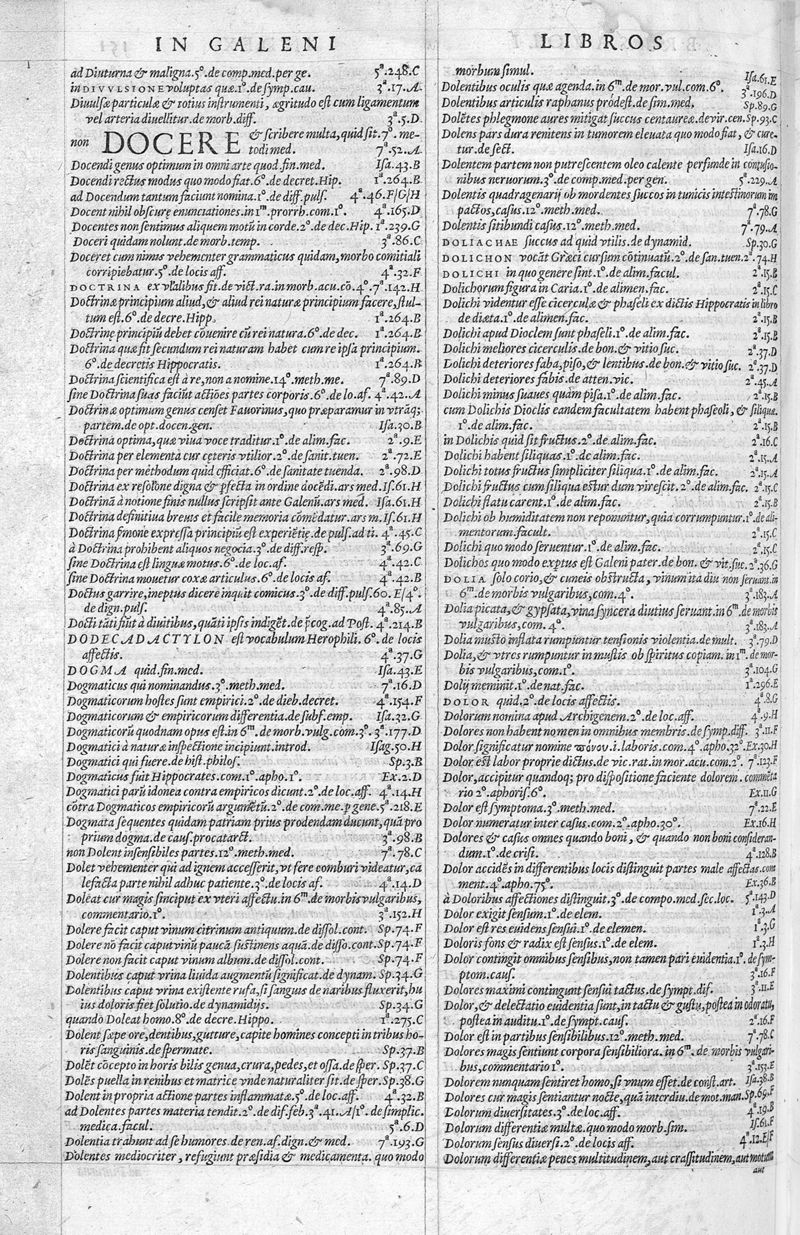 IN GALENI
ad Diuturna & maligna.5º.de comp.med.per ge. 5ª.248.C
in DIVVLSIONE voluptas quæ.1º.de symp.cau. 3ª.17.A
Diuulsæ particulæ & totius instrumenti, ægritudo est cum ligamentum
vel arteria diuellitur.de morb.diff. 3ª.5.D
non DOCERE & scribere multa, quid sit.7º.me-
todi med. 7ª.52.A
Docendi genus optimum in omni arte quod fin.med. Isa.43.B
Docendi rectus modus quo modo fiat.6º.de decret.Hip. 1ª.264.B
ad Docendum tantum faciunt nomina.1º.diff.puls. 4ª.46.F/G/H
Docent nihil obscurè enunciationes.in 1ᵐ.prorrh.com.1º. 4ª.165.D
Docentes non sentimus aliquem motū in corde.2º.de dec.Hip. 1ª.239.G
Doceri quidam nolunt.de morb.temp. 3ª.86.C
Doceret cum nimus vehementer grammaticus quidam, morbo comitiali
corripiebatur.5º.de locis aff. 4ª.32.F
DOCTRINA ex vsalibus fit.de vict.ra.in morb.acu.cō.4º.7ª.142.H
Doctrinæ principium aliud, & aliud rei naturæ principium facere, stul-
tum est.6º.de decre.Hipp. 1ª.264.B
Doctrinę principiū debet cōuenire cū rei natura.6º.de dec. 1ª.264.B
Doctrina quæ fit secundum rei naturam habet cum re ipsa principium.
6º.de decretis Hippocratis. 1ª.264.B
Doctrina scientifica est à re, non a nomine.14º.meth.me. 7ª.89.D
sine Doctrina suas faciūt actiões partes corporis.6º.de lo.af. 4ª.42.A
Doctrinæ optimum genus censet Fauorinus, quo præparamur in vtrāq;
partem.de opt.docen.gen. Isa.30.B
Doctrina optima, quæ viua voce traditur.1º.de alim.fac. 2ª.9.E
Doctrina per elementa cur ceteris vtilior.2º.de sanit.tuen. 2ª.72.E
Doctrina per methodum quid efficiat.6º.de sanitate tuenda. 2ª.98.D
Doctrina ex resolōne digna & pfecta in ordine docēdi.ars med.Is.61.H
Doctrinā à notione finis nullus scripsit ante Galenū.ars med. Isa.61.H
Doctrina definitiua breuis et facile memoria cōmēdatur.ars m.Is.61.H
Doctrina smone expressa principiū est experiētię.de puls.ad ti. 4ª.45.C
à Doctrina prohibent aliquos negocia.3º.de diff.resp. 3ª.69.G
sine Doctrina est linguæ motus.6º.de loc.af. 4ª.42.C
sine Doctrina mouetur coxæ articulus.6º.de locis af. 4ª.42.B
Doctus garrire, ineptus dicere inquit comicus.3º.de diff.puls.60.E/4º.
de dign.puls. 4ª.85.A
Docti tāti fiūt à diuitibus, quāti ipsis indigēt.de pcog.ad Post. 4ª.214.B
DODECADACTYLON est vocabulum Herophili.6º.de locis
affectis. 4ª.37.G
DOGMA quid.fin.med. Isa.43.E
Dogmaticus qui nominandus.3º.meth.med. 7ª.16.D
Dogmaticorum hostes sunt empirici.2º.de dieb.decret. 4ª.154.F
Dogmaticorum & empiricorum differentia.de subf.emp. Isa.32.G
Dogmaticorū quodnam opus est.in 6ᵐ.de morb.vulg.com.3º.3ª.177.D
Dogmatici à naturæ inspectione incipiunt.introd. Isag.50.H
Dogmatici qui fuere.de hist.philos. Sp.3.B
Dogmaticus fuit Hippocrates.com.1º.apho.1º. Ex.2.D
Dogmatici parū idonea contra empiricos dicunt.2º.de loc.aff. 4ª.14.H
cōtra Dogmaticos empiricorū argumētū.2º.de com.me.p gene.5ª.218.E
Dogmata sequentes quidam patriam prius prodendam ducunt, quā pro
prium dogma.de caus.procatarct. 3ª.98.B
non Dolent insensibiles partes.12º.meth.med. 7ª.78.C
Dolet vehementer qui ad ignem accesserit, vt fere comburi videatur, ca
lefacta parte nihil adhuc patiente.3º.de locis af. 4ª.14.D
Doleat cur magis sinciput ex vteri affectu.in 6ᵐ.de morbis vulgaribus,
commentario.1º. 3ª.152.H
Dolere facit caput vinum citrinum antiquum.de dissol.cont. Sp.74.F
Dolere nō facit caput vinū paucā sustinens aquā.de disso.cont.Sp.74.F
Dolere non facit caput vinum album.de dissol.cont. Sp.74.F
Dolentibus caput vrina liuida augmentū significat.de dynam. Sp.34.G
Dolentibus caput vrina existente rufa, si sanguis de naribus fluxerit, hu
ius doloris fiet solutio.de dynamidijs. Sp.34.G
quando Doleat homo.8º.de decre.Hippo. 1ª.275.C
Dolent sæpe ore, dentibus, gutture, capite homines concepti in tribus ho-
ris sanguinis.de spermate. Sp.37.B
Dolēt cōcepto in horis bilis genua, crura, pedes, et ossa.de sper. Sp.37.C
Dolēs puella in renibus et matrice vnde naturaliter sit.de sper.Sp.38.G
Dolent in propria actione partes inflammatæ.5º.de loc.aff. 4ª.32.B
ad Dolentes partes materia tendit.2º.dif.feb.3ª.41.A/1º.de simplic.
medica.facul. 5ª.6.D
Dolentia trahunt ad se humores.de ren.af.dign.& med. 7ª.193.G
Dolentes mediocriter, refugiunt præsidia & medicamenta. quo modo
LIBROS
morbum simul. Isa.61.E
Dolentibus oculis quæ agenda.in 6ᵐ.de mor.vul.com.6º. 3ª.196.D
Dolentibus articulis raphanus prodest.de sim.med. Sp.89.G
Dolētes phlegmone aures mitigat succus centaureæ.de vir.cen.Sp.93.C
Dolens pars dura renitens in tumorem eleuata quo modo fiat, & cure-
tur.de sect. Isa.16.D
Dolentem partem non putrescentem oleo calente perfunde in contusio-
nibus neruorum.3º.de comp.med.per gen. 5ª.229.A
Dolentis quadragenarij ob mordentes succos in tunicis intestinorum im
pactos, casus.12º.meth.med. 7ª.78.G
Dolentis sitibundi casus.12º.meth.med. 7ª.79.A
DOLIACHAE succus ad quid vtilis.de dynamid. Sp.30.G
DOLICHON vocāt Græci cursum cōtinuatū.2º.de san.tuen.2ª.74.H
DOLICHI in quo genere sint.1º.de alim.facul. 2ª.15.B
Dolichorum figura in Caria.1º.de alimen.fac. 2ª.15.C
Dolichi videntur esse cicerculæ & phaseli ex dictis Hippocratis in libro
de diæta.1º.de alimen.fac. 2ª.15.B
Dolichi apud Dioclem sunt phaseli.1º.de alim.fac. 2ª.15.B
Dolichi meliores cicerculis.de bon.& vitio suc. 2ª.37.D
Dolichi deteriores faba, piso, & lentibus.de bon.& vitio suc. 2ª.37.D
Dolichi deteriores fabis.de atten.vic. 2ª.45.A
Dolichi minus suaues quàm pisa.1º.de alim.fac. 2ª.15.B
cum Dolichis Dioclis eandem facultatem habent phaseoli, & siliquæ.
1º.de alim.fac. 2ª.15.B
in Dolichis quid sit fructus.2º.de alim.fac. 2ª.16.C
Dolichi habent siliquas.1º.de alim.fac. 2ª.15.A
Dolichi totus fructus simpliciter siliqua.1º.de alim.fac. 2ª.15.A
Dolichi fructus cum siliqua estur dum virescit.2º.de alim.fac. 2ª.15.C
Dolichi flatu carent.1º.de alim.fac. 2ª.15.B
Dolichi ob humiditatem non reponuntur, quia corrumpuntur.1º.de ali-
mentorum.facult. 2ª.15.C
Dolichi quo modo seruentur.1º.de alim.fac. 2ª.15.C
Dolichos quo modo exptus est Galeni pater.de bon.& vit.suc. 2ª.36.G
DOLIA solo corio, & cuneis obstructa, vinum ita diu non seruant.in
6ᵐ.de morbis vulgaribus, com.4º. 3ª.183.A
Dolia picata, & gypsata, vina syncera diutius seruant.in 6ᵐ.de morbis
vulgaribus, com.4º. 3ª.183.A
Dolia musto inflata rumpuntur tensionis violentia.de mult. 3ª.79.D
Dolia, & vtres rumpuntur in mustis ob spiritus copiam.in 1ᵐ.de mor-
bis vulgaribus, com.1º. 3ª.104.G
Dolij meminit.1º.de nat.fac. 1ª.296.E
DOLOR quid.2º.de locis affectis. 4ª.8.G
Dolorum nomina apud Archigenem.2º.de loc.aff. 4ª.9.H
Dolores non habent nomen in omnibus membris.de symp.diff. 3ª.11.F
Dolor significatur nomine πόνου.i.laboris.com.4º.apho.32º.Ex.30.H
Dolor est labor proprie dictus.de vic.rat.in mor.acu.com.2º. 7ª.123.F
Dolor, accipitur quandoq; pro dispositione faciente dolorem.commēta
rio 2º.aphoris.6º. Ex.11.G
Dolor est symptoma.3º.meth.med. 7ª.22.E
Dolor numeratur inter casus.com.2º.apho.30º. Ex.16.H
Dolores & casus omnes quando boni, & quando non boni consideran-
dum.1º.de crisi. 4ª.128.B
Dolor accidēs in differentibus locis distinguit partes male affectas.com
ment.4º.apho.75º. Ex.36.B
à Doloribus affectiones distinguit.3º.de compo.med.sec.loc. 5ª.143.D
Dolor exigit sensum.1º.de elem. 1ª.3.A
Dolor est res euidens sensui.1º.de elemen. 1ª.3.G
Doloris fons & radix est sensus.1º.de elem. 1ª.3.H
Dolor contingit omnibus sensibus, non tamen pari euidentia.1º.de sym-
ptom.caus. 3ª.16.F
Dolores maximi contingunt sensui tactus.de sympt.dif. 3ª.11.E
Dolor, & delectatio euidentia sunt, in tactu & gustu, postea in odoratu,
postea in auditu.1º.de sympt.caus. 2ª.16.F
Dolor est in partibus sensibilibus.12º.meth.med. 7ª.78.C
Dolores magis sentiunt corpora sensibiliora.in 6ᵐ.de morbis vulgari-
bus, commentario 1º. 3ª.153.E
Dolorem nunquam sentiret homo, si vnum esset.de const.art. Isa.38.B
Dolores cur magis sentiantur nocte, quā interdiu.de mot.man. Sp.69.F
Dolorum diuersitates.3º.de loc.aff. 4ª.19.B
Dolorum differentiæ multæ.quo modo morb.sim. Is.61.F
Dolorum sensus diuersi.2º.de locis aff. 4ª.12.E/F
Dolorum differentiæ penes multitudinem, aut crassitudinem, aut motum
aut